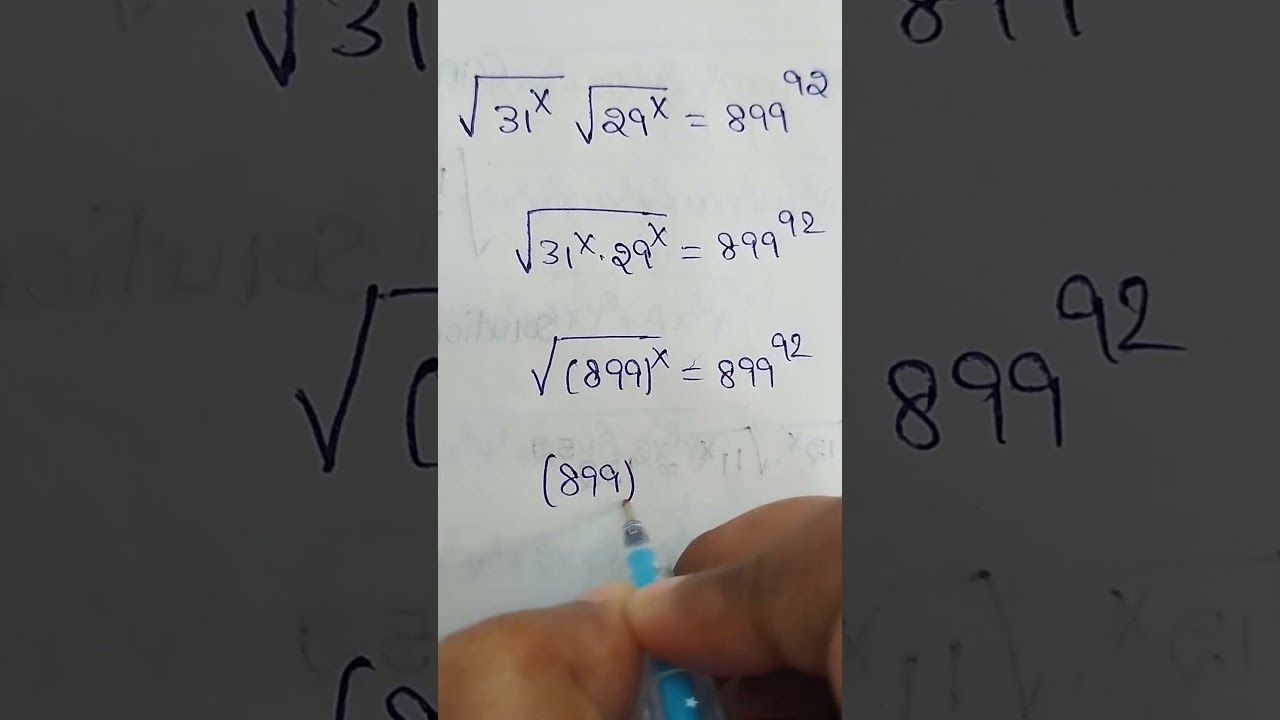 √31^x √29^x = 899^92
√31^x · 29^x = 899^92
√(899)^x = 899^92
(899)